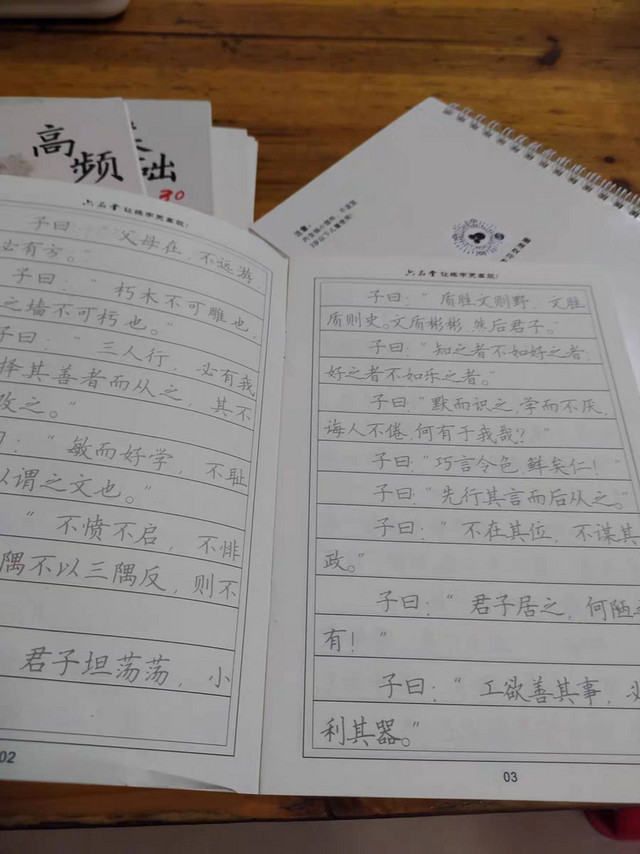 高频
础
六品堂 让练字更喜欢!
子曰："父母在，不远游，
必有方。"
子曰："朽木不可雕也，
之墙不可朽也。"
子曰："三人行，必有我
择其善者而从之，其不
改之。"
曰："敏而好学，不耻
以谓之文也。"
"不愤不启，不悱
隅不以三隅反，则不
君子坦荡荡，小
02
六品堂 让练字更喜欢!
子曰："质胜文则野，文胜
质则史。文质彬彬，然后君子。"
子曰："知之者不如好之者，
好之者不如乐之者。"
子曰："默而识之，学而不厌，
诲人不倦，何有于我哉？"
子曰："巧言令色，鲜矣仁！"
子曰："先行其言而后从之。"
子曰："不在其位，不谋其
政。"
子曰："君子居之，何陋之
有！"
子曰："工欲善其事，必
利其器。"
03